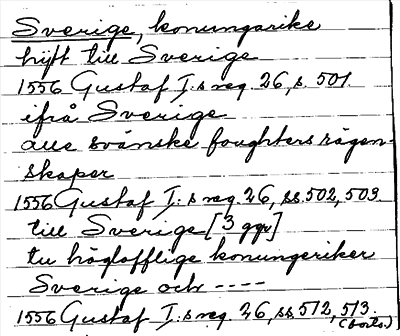 Sverige, konungarike
hijt till Sverige
1556 Gustaf I:s reg. 26, s. 501.
ifrå Sverige
alle svänske foughters rägen-
skaper
1556 Gustaf I:s reg. 26, ss. 502, 503.
till Sverige [3 ggr]
tu höglofflige konungeriker
Sverige och ----
1556 Gustaf I:s reg. 26, ss. 512, 513.
(forts.)